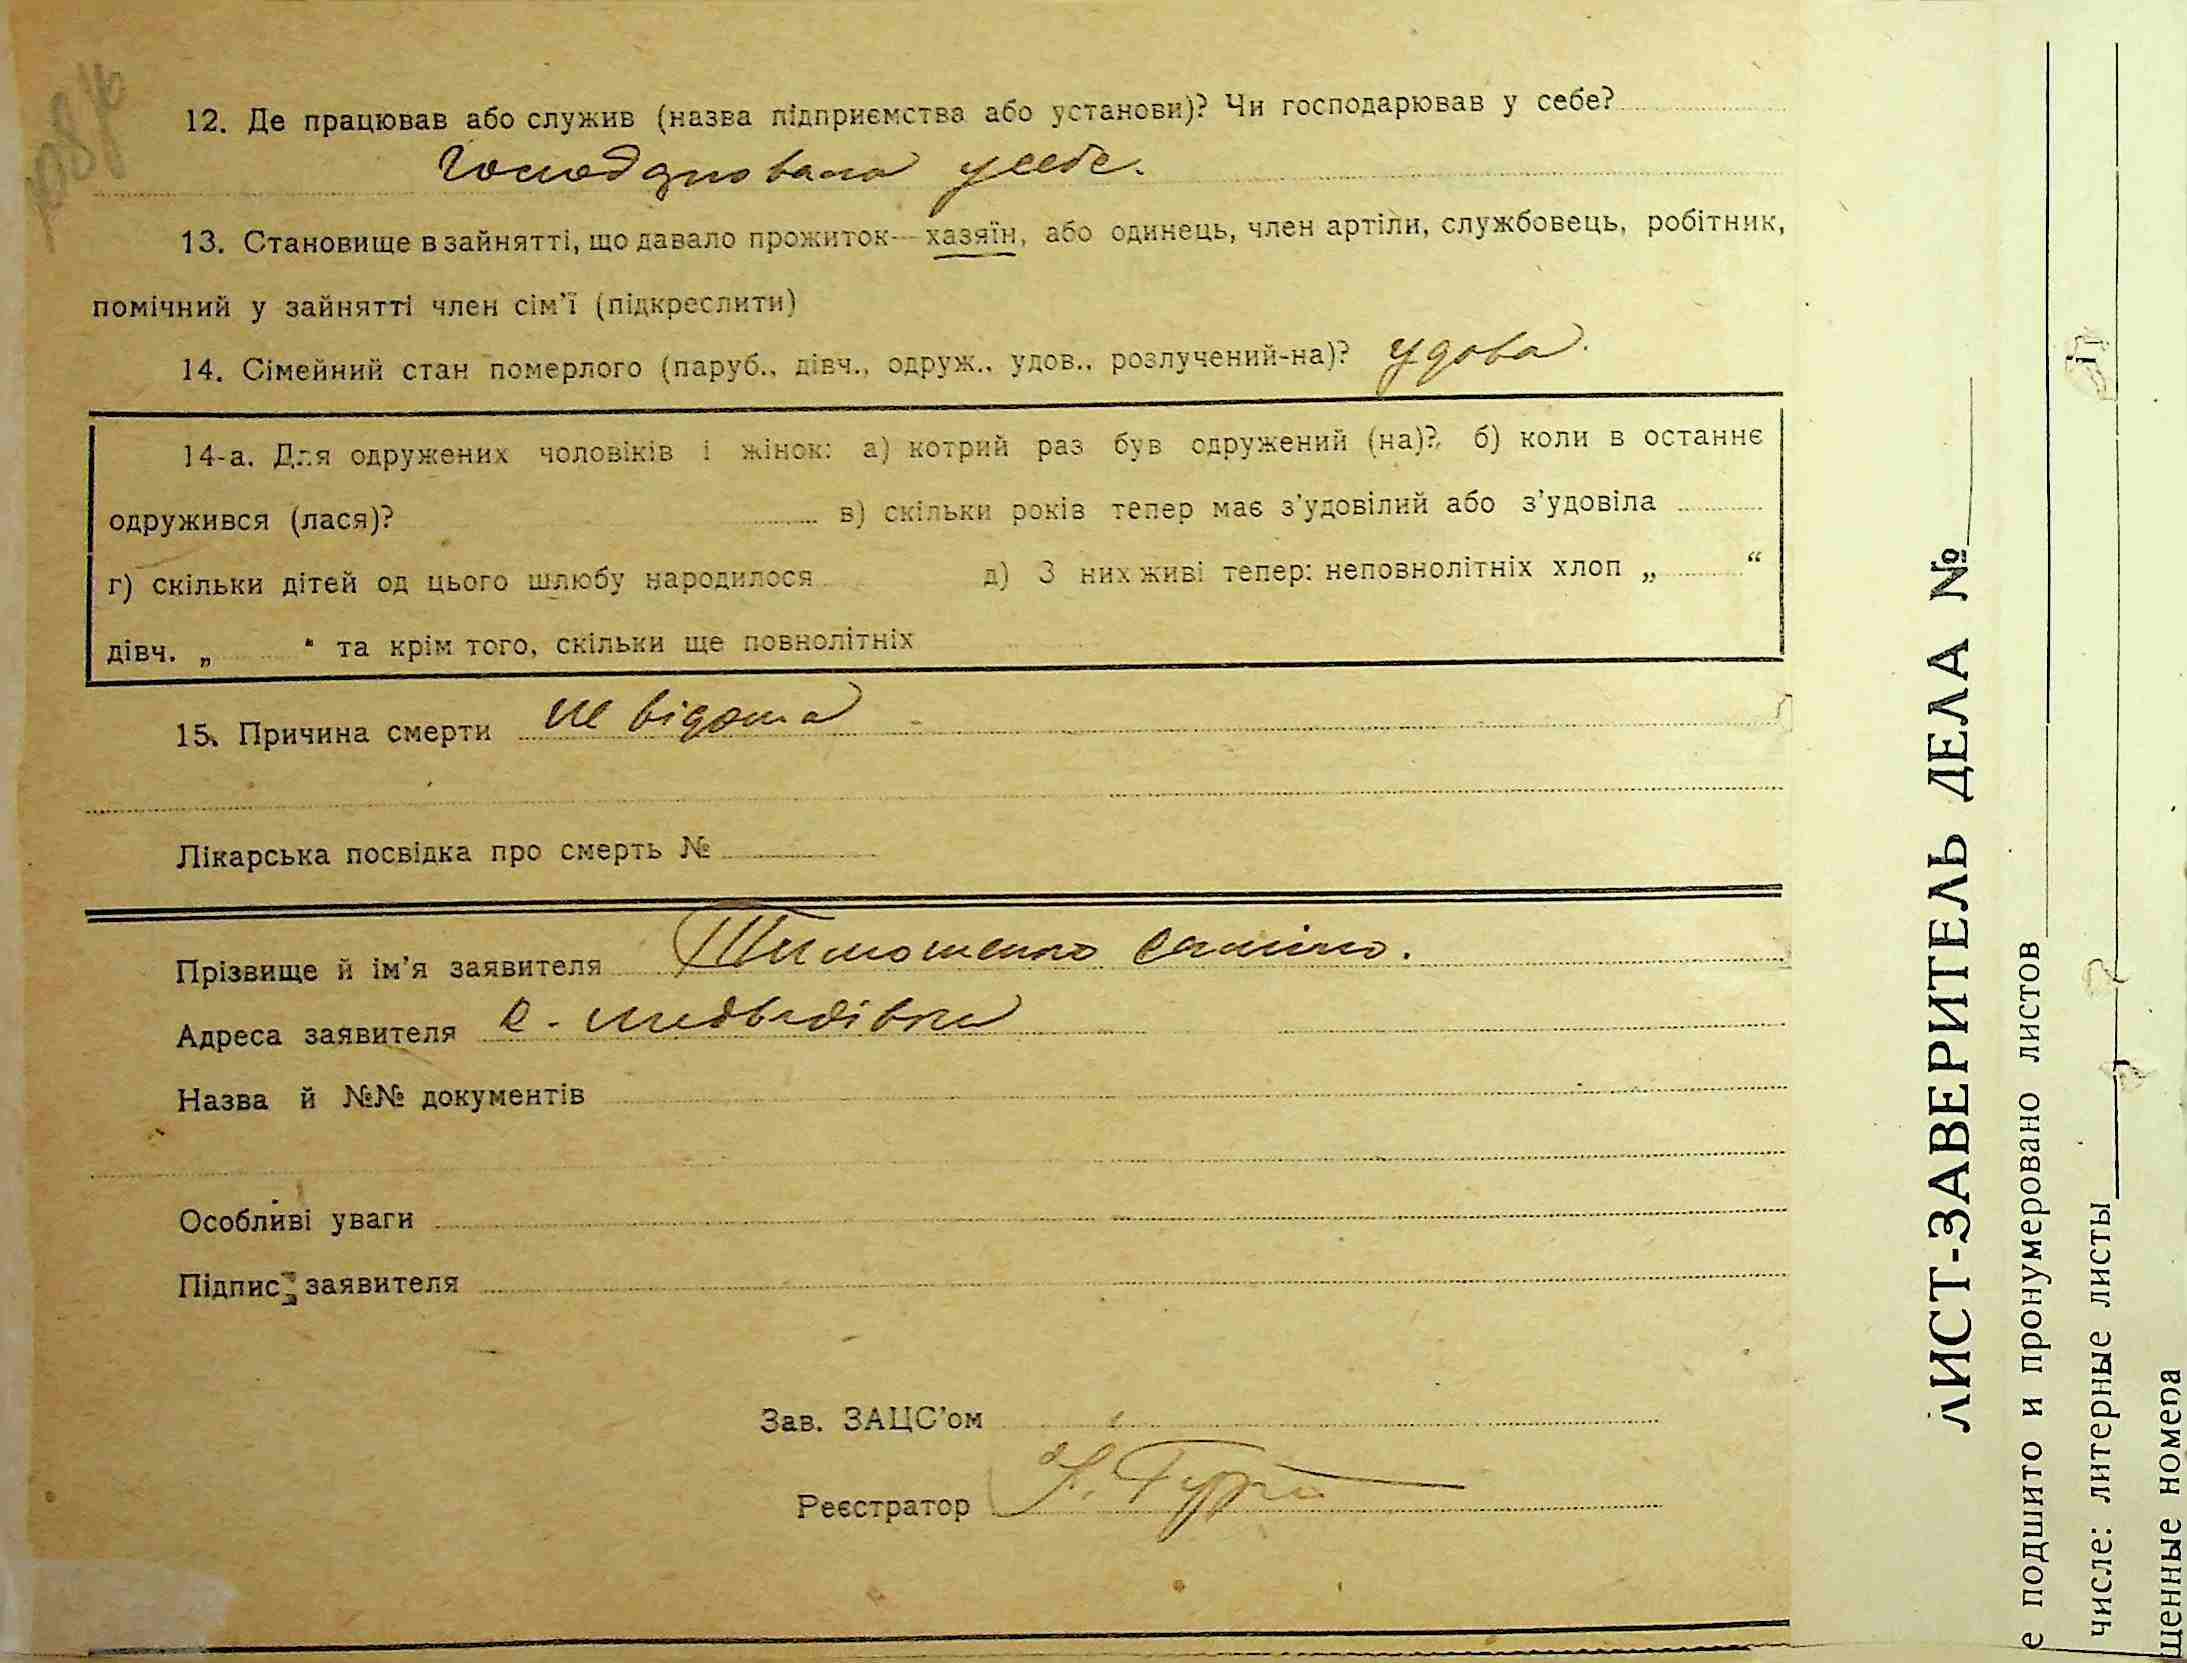 12. Де працював або служив (назва підприємства або установи)? Чи господарював у себе?
Господарювала у себе.
13. Становище в зайнятті, що давало прожиток—хазяїн, або одинець, член артіли, службовець, робітник,
помічний у зайнятті член сім'ї (підкреслити)
14. Сімейний стан померлого (паруб., дівч., одруж., удов., розлучений-на)? удова.
14-а. Для одружених чоловіків і жінок: а) котрий раз був одружений (на)? б) коли в останнє
одружився (лася)? в) скільки років тепер має з'удовілий або з'удовіла
г) скільки дітей од цього шлюбу народилося д) З них живі тепер: неповнолітніх хлоп „ “
дівч. „ “ та крім того, скільки ще повнолітніх
15. Причина смерти не відома
Лікарська посвідка про смерть №
Прізвище й ім'я заявителя Тимошенко
Адреса заявителя с. Медведівка
Назва й №№ документів
Особливі уваги
Підпис заявителя
Зав. ЗАЦС'ом
Реєстратор
ЛИСТ-ЗАВЕРИТЕЛЬ ДЕЛА №
е подшито и пронумеровано листов
числе: литерные листы
щенные номера